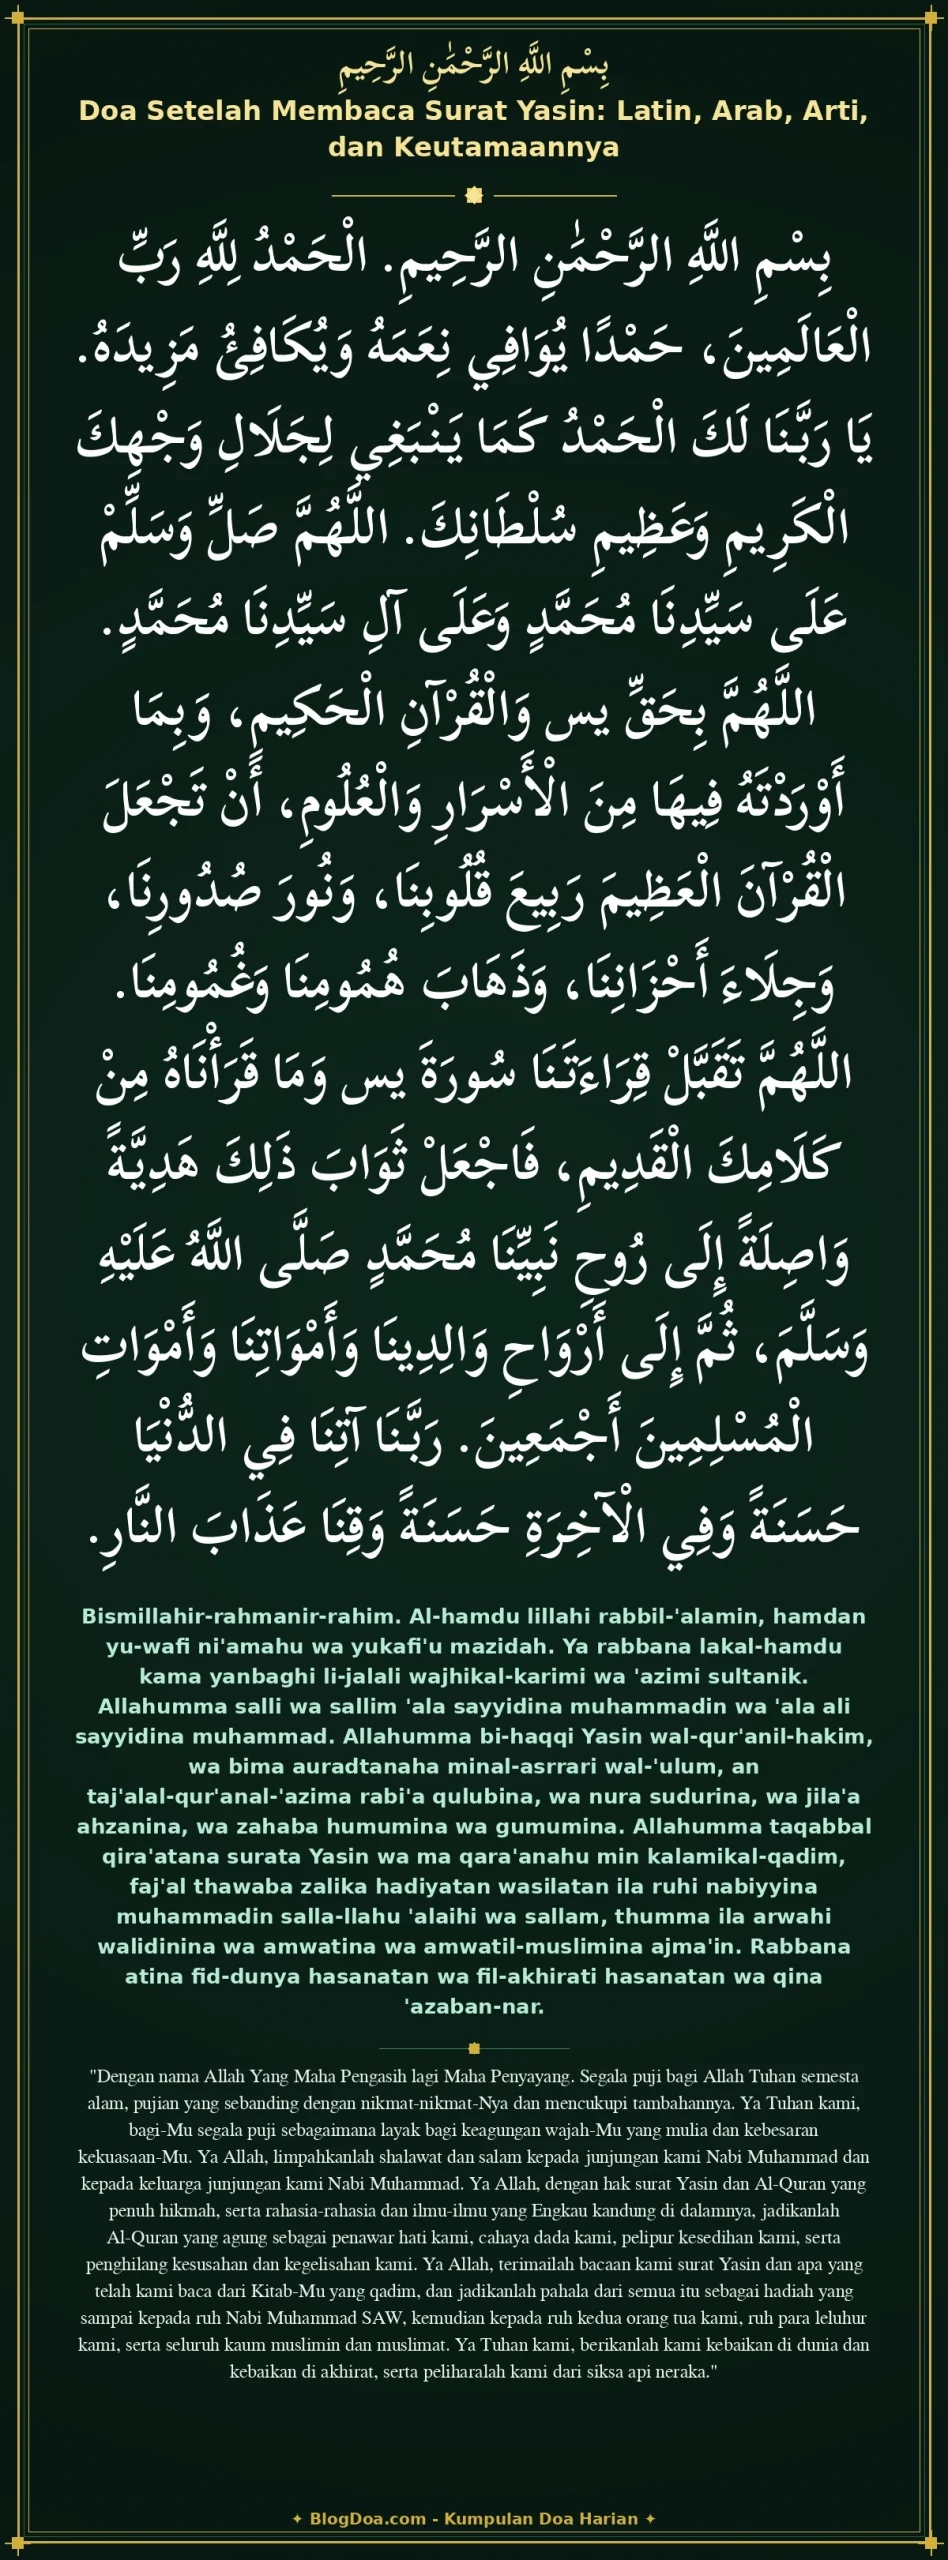 بِسْمِ اللَّهِ الرَّحْمَٰنِ الرَّحِيمِ
Doa Setelah Membaca Surat Yasin: Latin, Arab, Arti,
dan Keutamaannya
بِسْمِ اللَّهِ الرَّحْمَٰنِ الرَّحِيمِ. الْحَمْدُ لِلَّهِ رَبِّ
الْعَالَمِينَ، حَمْدًا يُوَافِي نِعَمَهُ وَيُكَافِئُ مَزِيدَهُ.
يَا رَبَّنَا لَكَ الْحَمْدُ كَمَا يَنْبَغِي لِجَلَالِ وَجْهِكَ
الْكَرِيمِ وَعَظِيمِ سُلْطَانِكَ. اللَّهُمَّ صَلِّ وَسَلِّمْ
عَلَى سَيِّدِنَا مُحَمَّدٍ وَعَلَى آلِ سَيِّدِنَا مُحَمَّدٍ.
اللَّهُمَّ بِحَقِّ يس وَالْقُرْآنِ الْحَكِيمِ، وَبِمَا
أَوْرَدْتَهُ فِيهَا مِنَ الْأَسْرَارِ وَالْعُلُومِ، أَنْ تَجْعَلَ
الْقُرْآنَ الْعَظِيمَ رَبِيعَ قُلُوبِنَا، وَنُورَ صُدُورِنَا،
وَجِلَاءَ أَحْزَانِنَا، وَذَهَابَ هُمُومِنَا وَغُمُومِنَا.
اللَّهُمَّ تَقَبَّلْ قِرَاءَتَنَا سُورَةَ يس وَمَا قَرَأْنَاهُ مِنْ
كَلَامِكَ الْقَدِيمِ، فَاجْعَلْ ثَوَابَ ذَلِكَ هَدِيَّةً
وَاصِلَةً إِلَى رُوحِ نَبِيِّنَا مُحَمَّدٍ صَلَّى اللَّهُ عَلَيْهِ
وَسَلَّمَ، ثُمَّ إِلَى أَرْوَاحِ وَالِدِينَا وَأَمْوَاتِنَا وَأَمْوَاتِ
الْمُسْلِمِينَ أَجْمَعِينَ. رَبَّنَا آتِنَا فِي الدُّنْيَا
حَسَنَةً وَفِي الْآخِرَةِ حَسَنَةً وَقِنَا عَذَابَ النَّارِ.
Bismillahir-rahmanir-rahim. Al-hamdu lillahi rabbil-'alamin, hamdan
yu-wafi ni'amahu wa yukafi'u mazidah. Ya rabbana lakal-hamdu
kama yanbaghi li-jalali wajhikal-karimi wa 'azimi sultanik.
Allahumma salli wa sallim 'ala sayyidina muhammadin wa 'ala ali
sayyidina muhammad. Allahumma bi-haqqi Yasin wal-qur'anil-hakim,
wa bima auradtanaha minal-asrrari wal-'ulum, an
taj'alal-qur'anal-'azima rabi'a qulubina, wa nura sudurina, wa jila'a
ahzanina, wa zahaba humumina wa gumumina. Allahumma taqabbal
qira'atana surata Yasin wa ma qara'anahu min kalamikal-qadim,
faj'al thawaba zalika hadiyatan wasilatan ila ruhi nabiyyina
muhammadin salla-llahu 'alaihi wa sallam, thumma ila arwahi
walidinina wa amwatina wa amwatil-muslimina ajma'in. Rabbana
atina fid-dunya hasanatan wa fil-akhirati hasanatan wa qina
'azaban-nar.
"Dengan nama Allah Yang Maha Pengasih lagi Maha Penyayang. Segala puji bagi Allah Tuhan semesta
alam, pujian yang sebanding dengan nikmat-nikmat-Nya dan mencukupi tambahannya. Ya Tuhan kami,
bagi-Mu segala puji sebagaimana layak bagi keagungan wajah-Mu yang mulia dan kebesaran
kekuasaan-Mu. Ya Allah, limpahkanlah shalawat dan salam kepada junjungan kami Nabi Muhammad dan
kepada keluarga junjungan kami Nabi Muhammad. Ya Allah, dengan hak surat Yasin dan Al-Quran yang
penuh hikmah, serta rahasia-rahasia dan ilmu-ilmu yang Engkau kandung di dalamnya, jadikanlah
Al-Quran yang agung sebagai penawar hati kami, cahaya dada kami, pelipur kesedihan kami, serta
penghilang kesusahan dan kegelisahan kami. Ya Allah, terimailah bacaan kami surat Yasin dan apa yang
telah kami baca dari Kitab-Mu yang qadim, dan jadikanlah pahala dari semua itu sebagai hadiah yang
sampai kepada ruh Nabi Muhammad SAW, kemudian kepada ruh kedua orang tua kami, ruh para leluhur
kami, serta seluruh kaum muslimin dan muslimat. Ya Tuhan kami, berikanlah kami kebaikan di dunia dan
kebaikan di akhirat, serta peliharalah kami dari siksa api neraka."
✦ BlogDoa.com - Kumpulan Doa Harian ✦